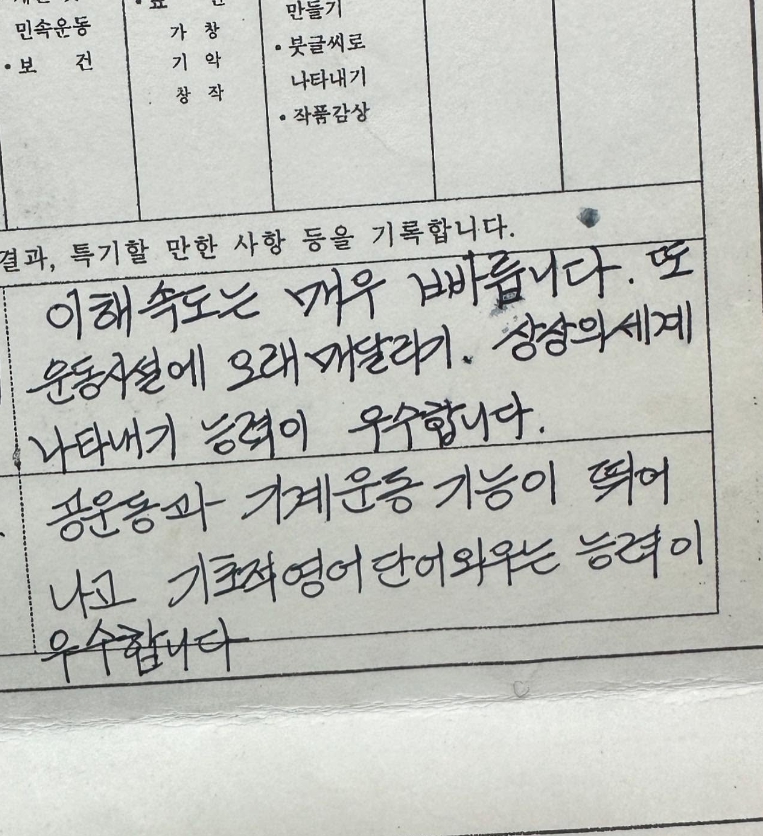 민속운동
• 보 건
가 창
기 악
창 작
만들기
• 붓글씨로
나타내기
• 작품감상
결과, 특기할 만한 사항 등을 기록합니다.
이해속도는 매우 빠릅니다. 또
운동시설에 오래 매달리기. 상상의세계
나타내기 능력이 우수합니다.
공운동과 기계운동 기능이 뛰어
나고 기초적영어단어외우는 능력이
우수합니다